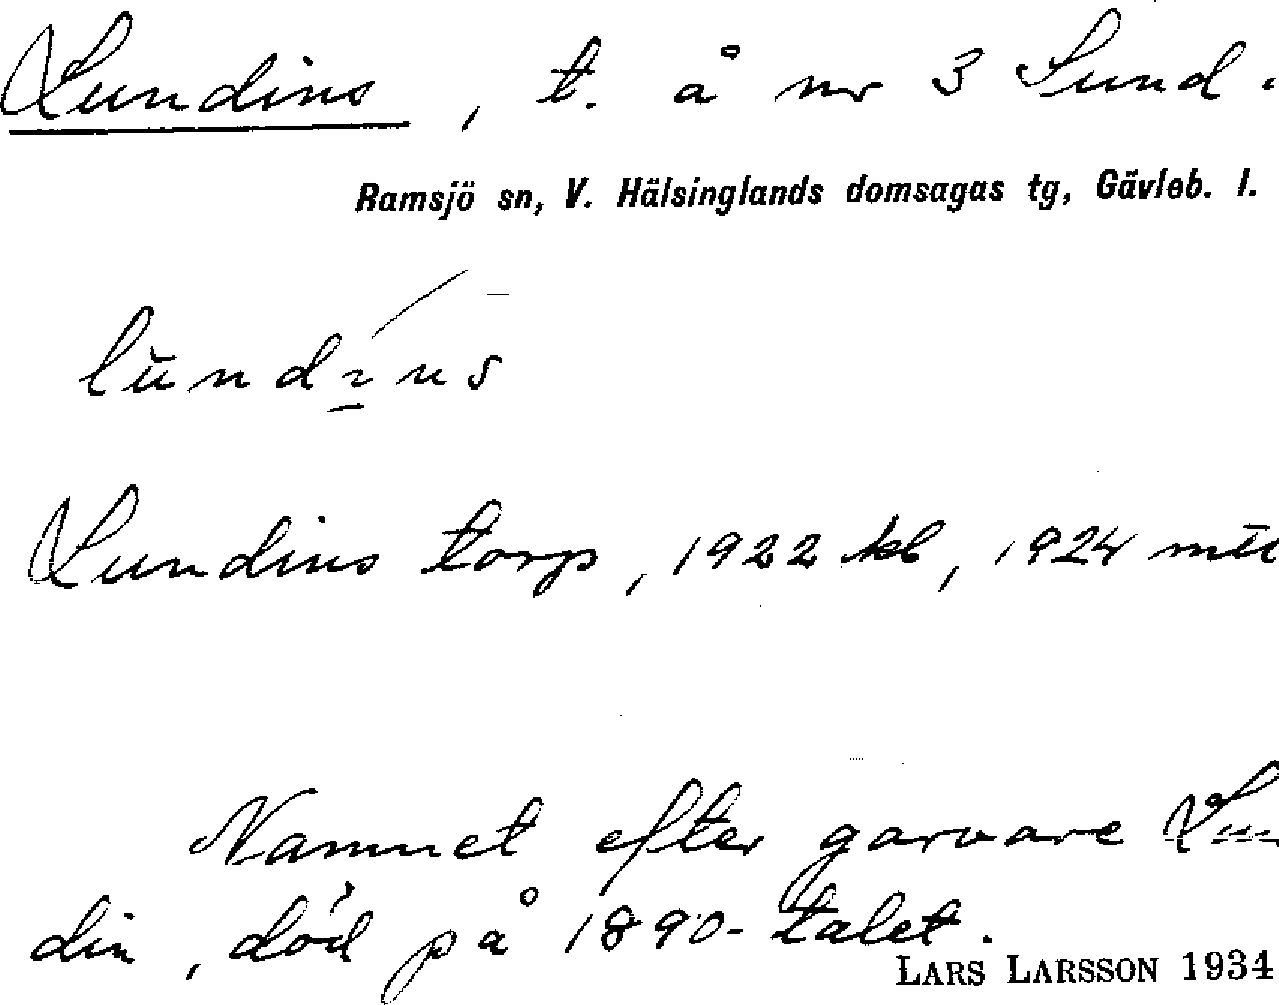 Lundins, t. å nr 3 Sund.
Ramsjö sn, V. Hälsinglands domsagas tg, Gävleb. l.
Lundins torp, 1922 kb, 1924 mtl
Namnet efter garvare Lun
din, död på 1890-talet.
LARS LARSSON 1934